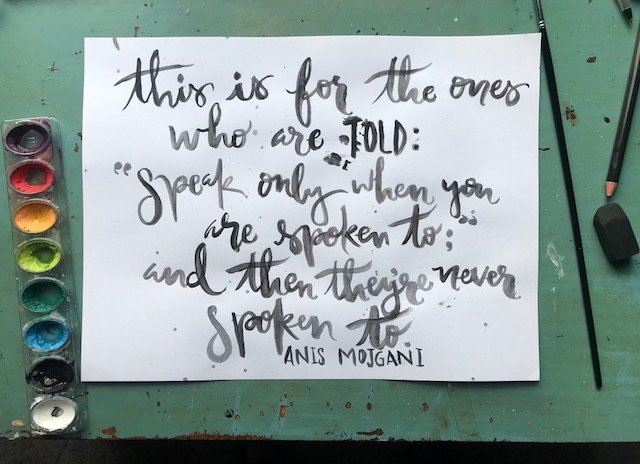 this is for the ones
who are TOLD:
"Speak only when you
are spoken to;"
and then they're never
spoken to.
ANIS MOJGANI